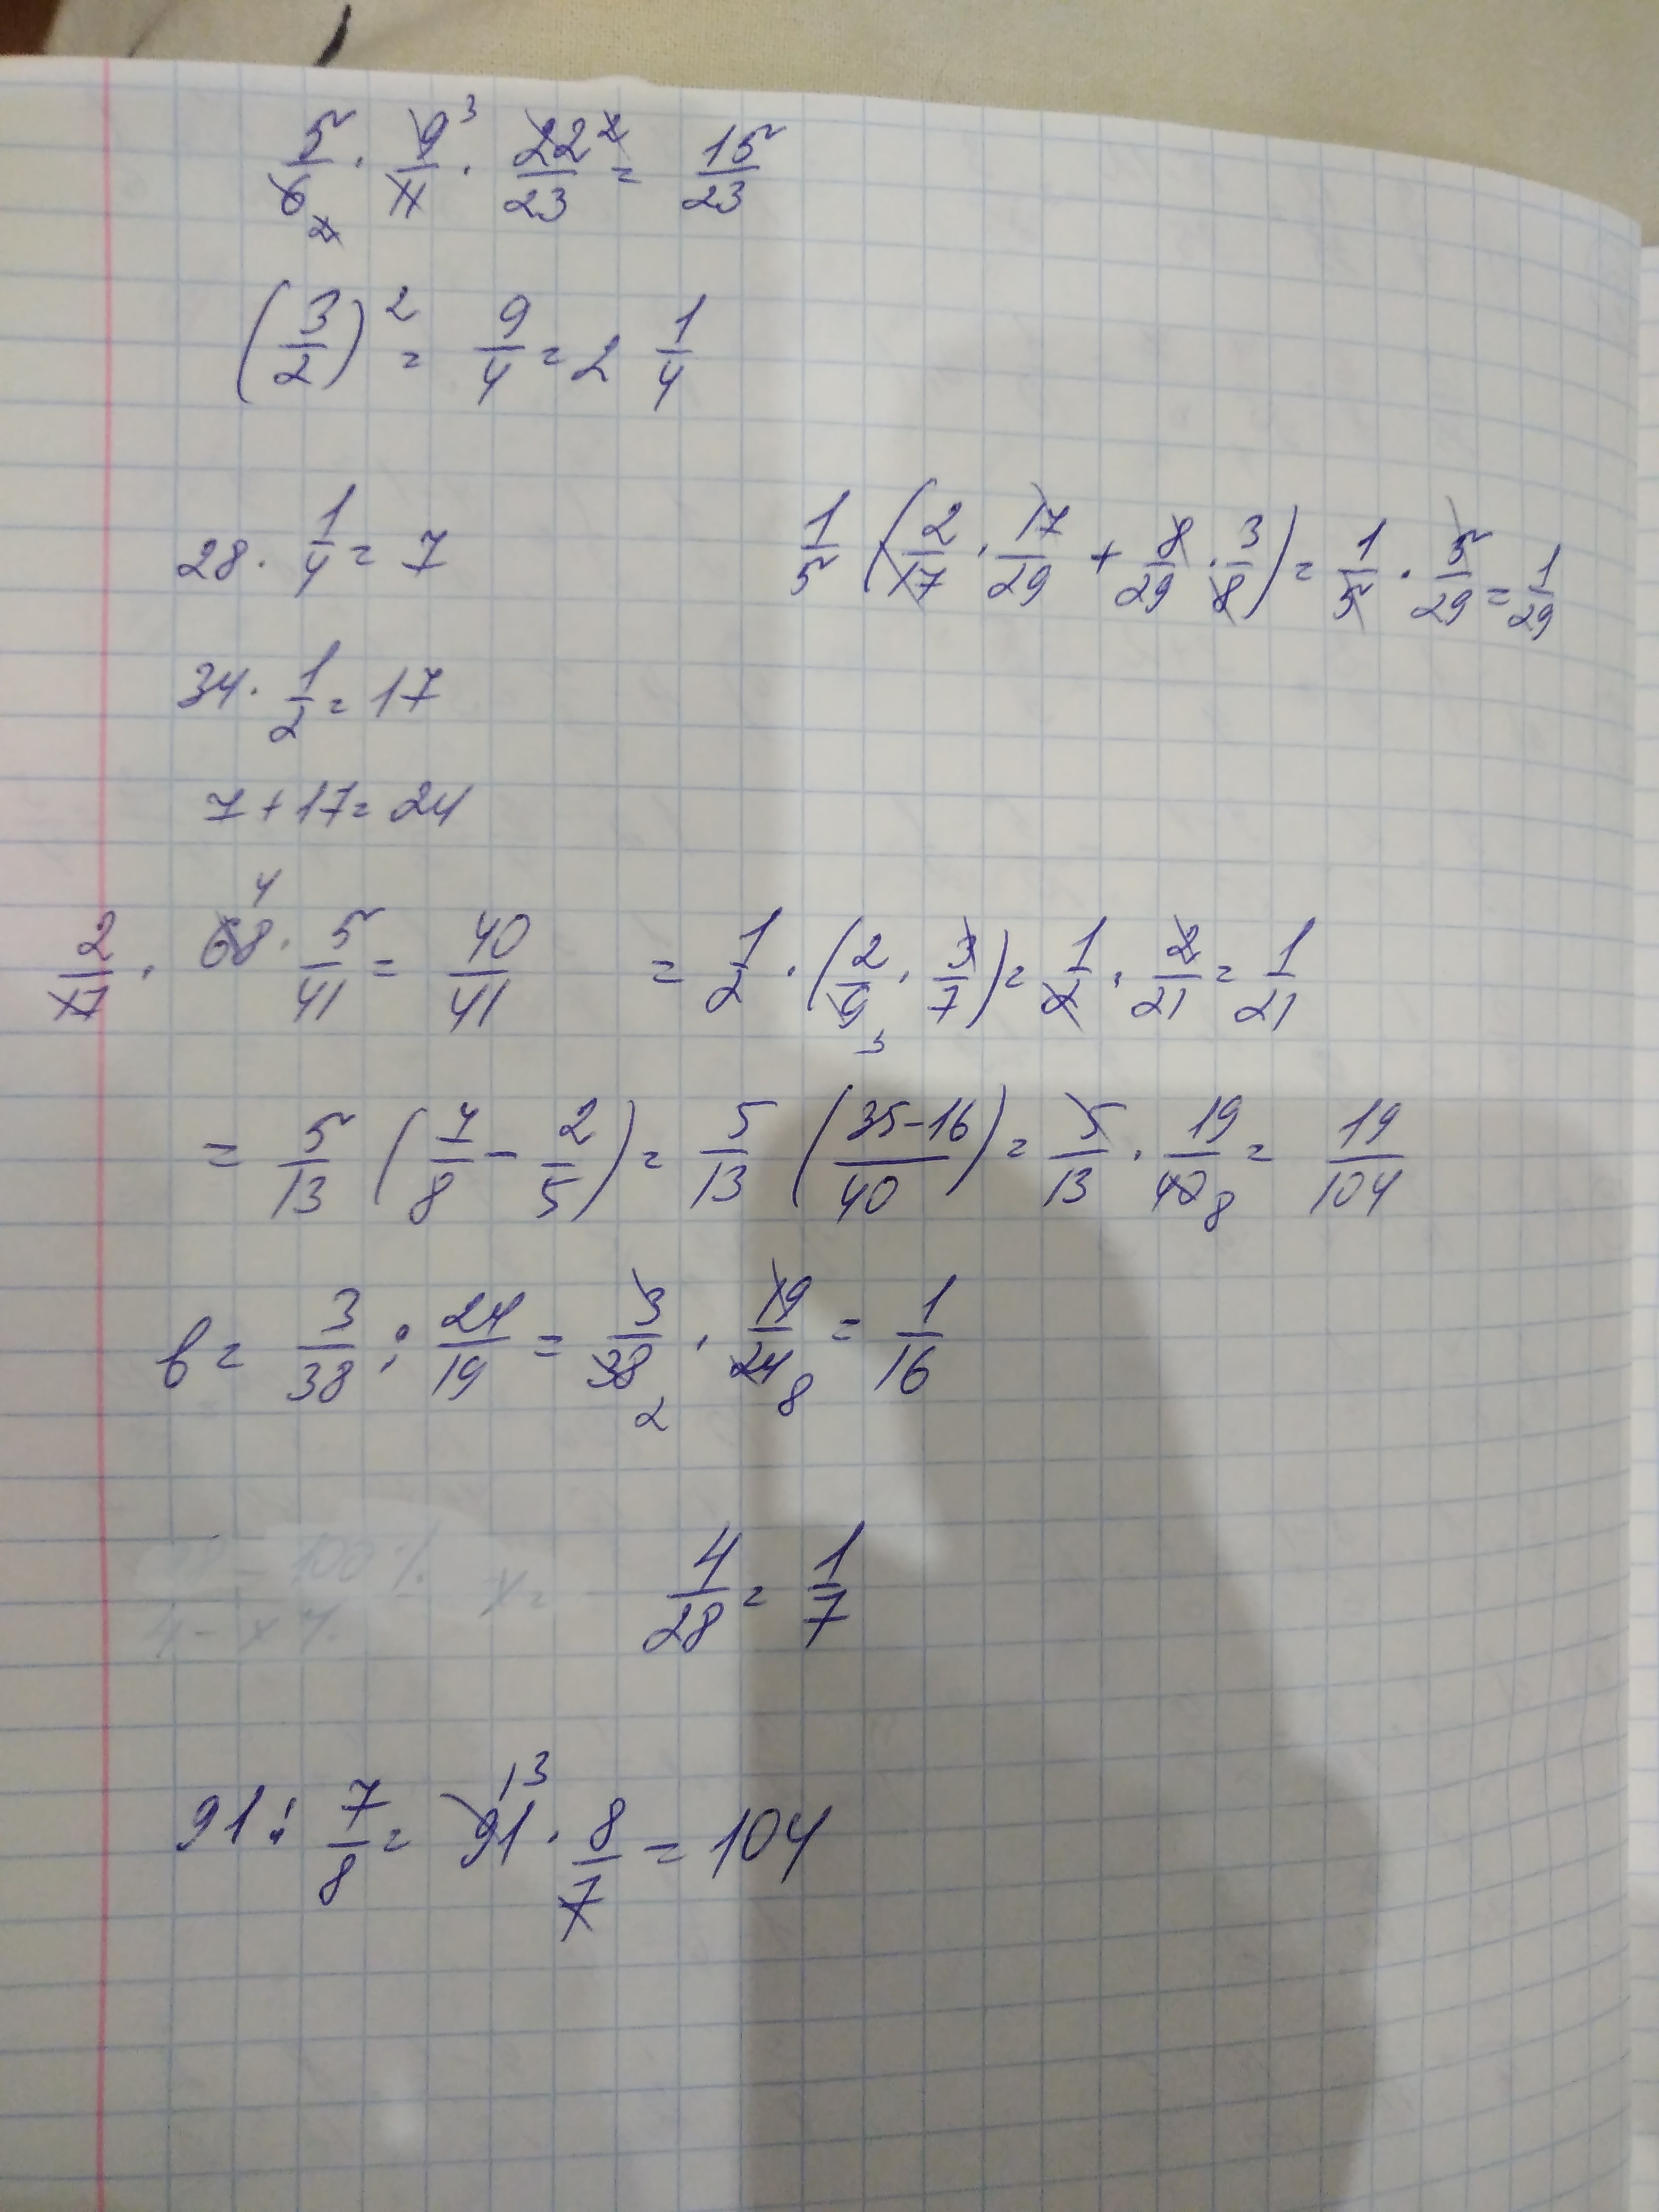 5/6 2 · 9/11 3 · 22/23 2 = 15/23
(3/2)^2 = 9/4 = 2 1/4
28 · 1/4 = 7
1/5 (2/17 · 17/29 + 8/29 · 3/8) = 1/5 · 5/29 = 1/29
34 · 1/2 = 17
7 + 17 = 24
2/17 · 68 4 · 5/41 = 40/41
= 1/2 · (2/9 3 · 3/7) = 1/2 · 2/21 = 1/21
= 5/13 (7/8 - 2/5) = 5/13 (35-16/40) = 5/13 · 19/40 8 = 19/104
b = 3/38 : 24/19 = 3/38 2 · 19/24 8 = 1/16
4/28 = 1/7
91 : 7/8 = 91 13 · 8/7 = 104